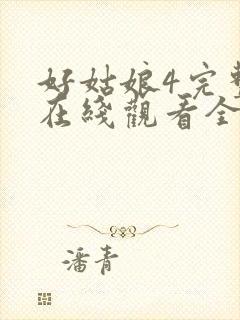 好姑娘4完整
在綫觀看全
潘青